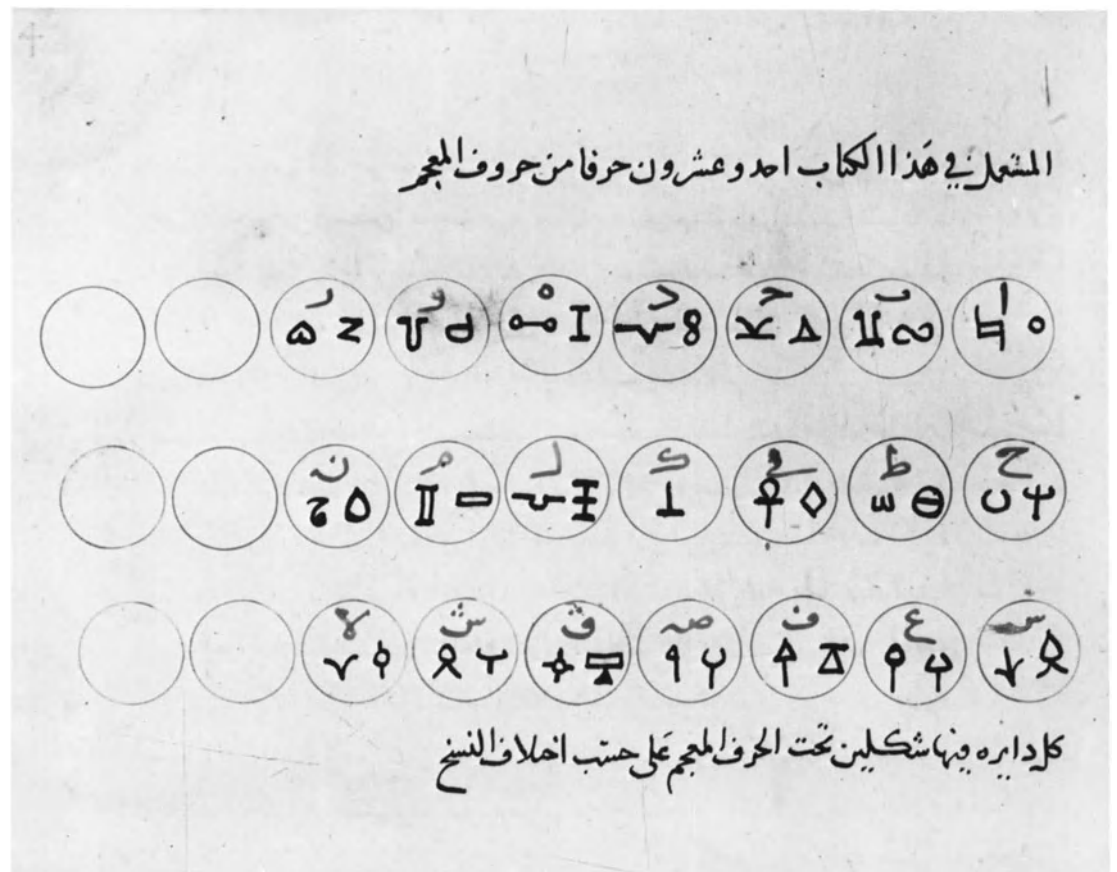 المشعل في هذا الكتاب احد وعشرون حرفا من حروف المعجم
ا ب ح د ه و ر
ح ط ي ك ل م ن
س ع ف ص ق ش لا
كل دايره فيها شكلين تحت الحرف المعجم على حسب اختلاف النسخ